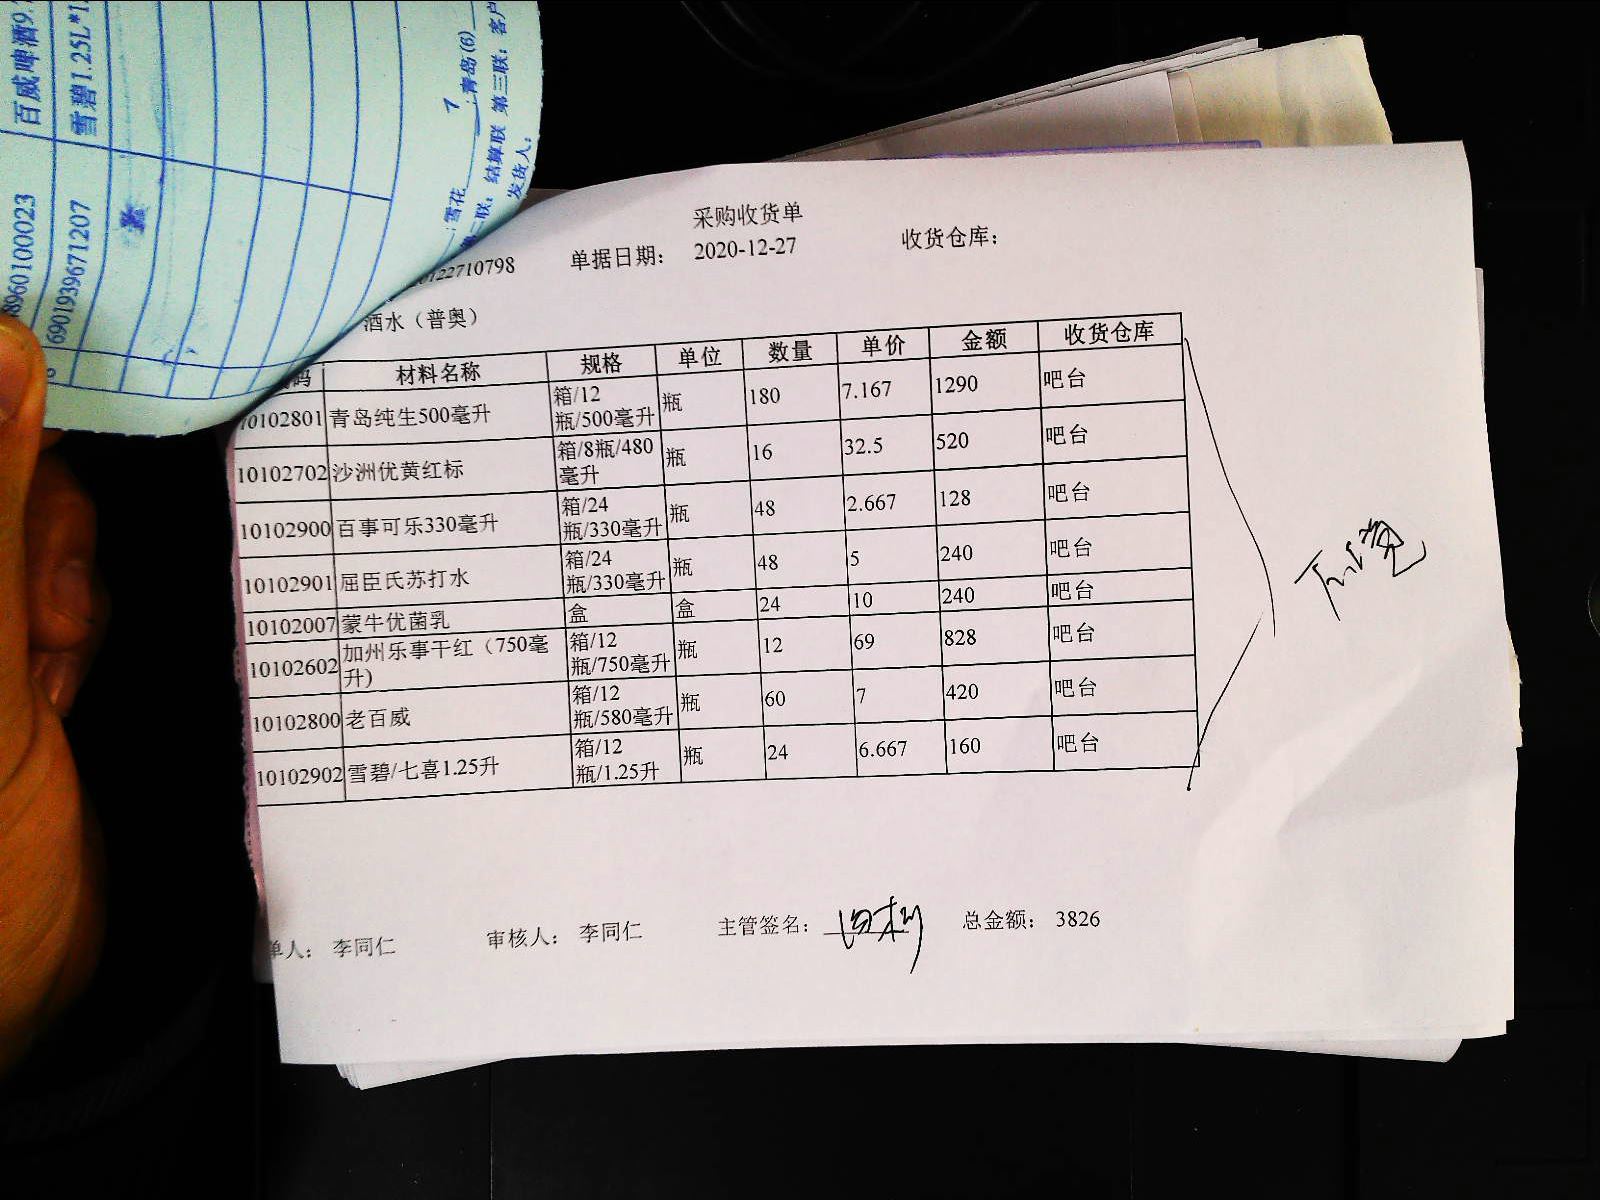 百威啤酒9.
雪碧1.25L*1
8960100023
6901939671207
雪花 7 青岛(6)
联: 结算联 第三联: 客户
发货人:
采购收货单
22710798 单据日期: 2020-12-27 收货仓库:
酒水(普奥)
码 材料名称 规格 单位 数量 单价 金额 收货仓库
10102801 青岛纯生500毫升 箱/12瓶/500毫升 瓶 180 7.167 1290 吧台
10102702 沙洲优黄红标 箱/8瓶/480毫升 瓶 16 32.5 520 吧台
10102900 百事可乐330毫升 箱/24瓶/330毫升 瓶 48 2.667 128 吧台
10102901 屈臣氏苏打水 箱/24瓶/330毫升 瓶 48 5 240 吧台
10102007 蒙牛优菌乳 盒 盒 24 10 240 吧台
10102602 加州乐事干红（750毫升) 箱/12瓶/750毫升 瓶 12 69 828 吧台
10102800 老百威 箱/12瓶/580毫升 瓶 60 7 420 吧台
10102902 雪碧/七喜1.25升 箱/12瓶/1.25升 瓶 24 6.667 160 吧台
单人: 李同仁 审核人: 李同仁 主管签名: 总金额: 3826